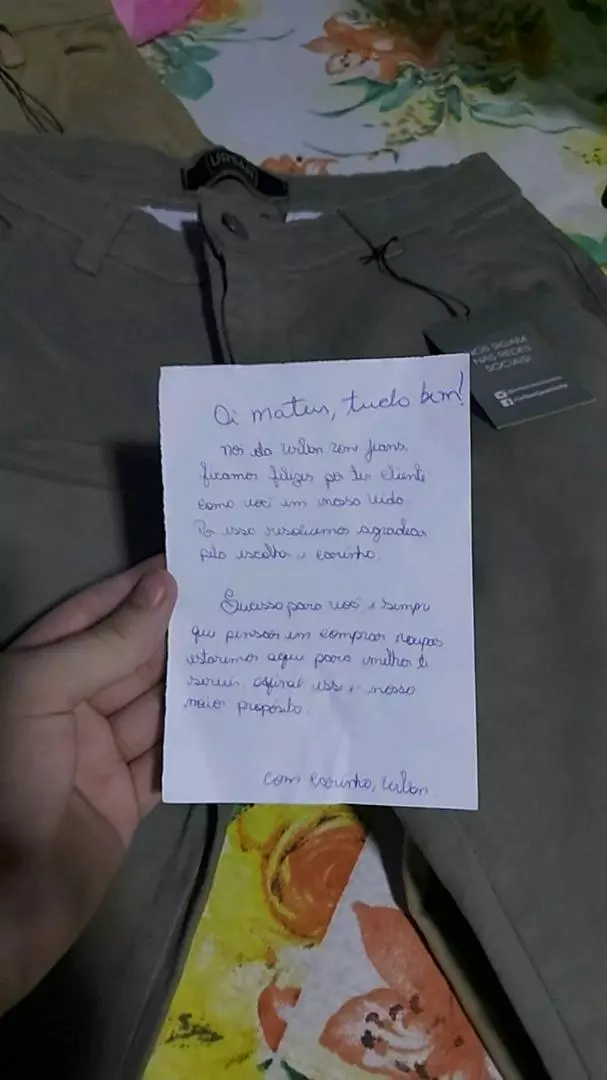 URBAN
NOS SIGAM
NAS REDES
SOCIAIS!
Oi mateus, tudo bem!
Nós da Urban zone jeans,
ficamos felizes por ter cliente
como você em nossa vida.
Por isso resolvemos agradecer
pela escolha e carinho.
Sucesso para você e sempre
que pensar em comprar roupas
estaremos aqui para melhor te
servir, afinal esse é nosso
maior propósito.
Com carinho, Urban.